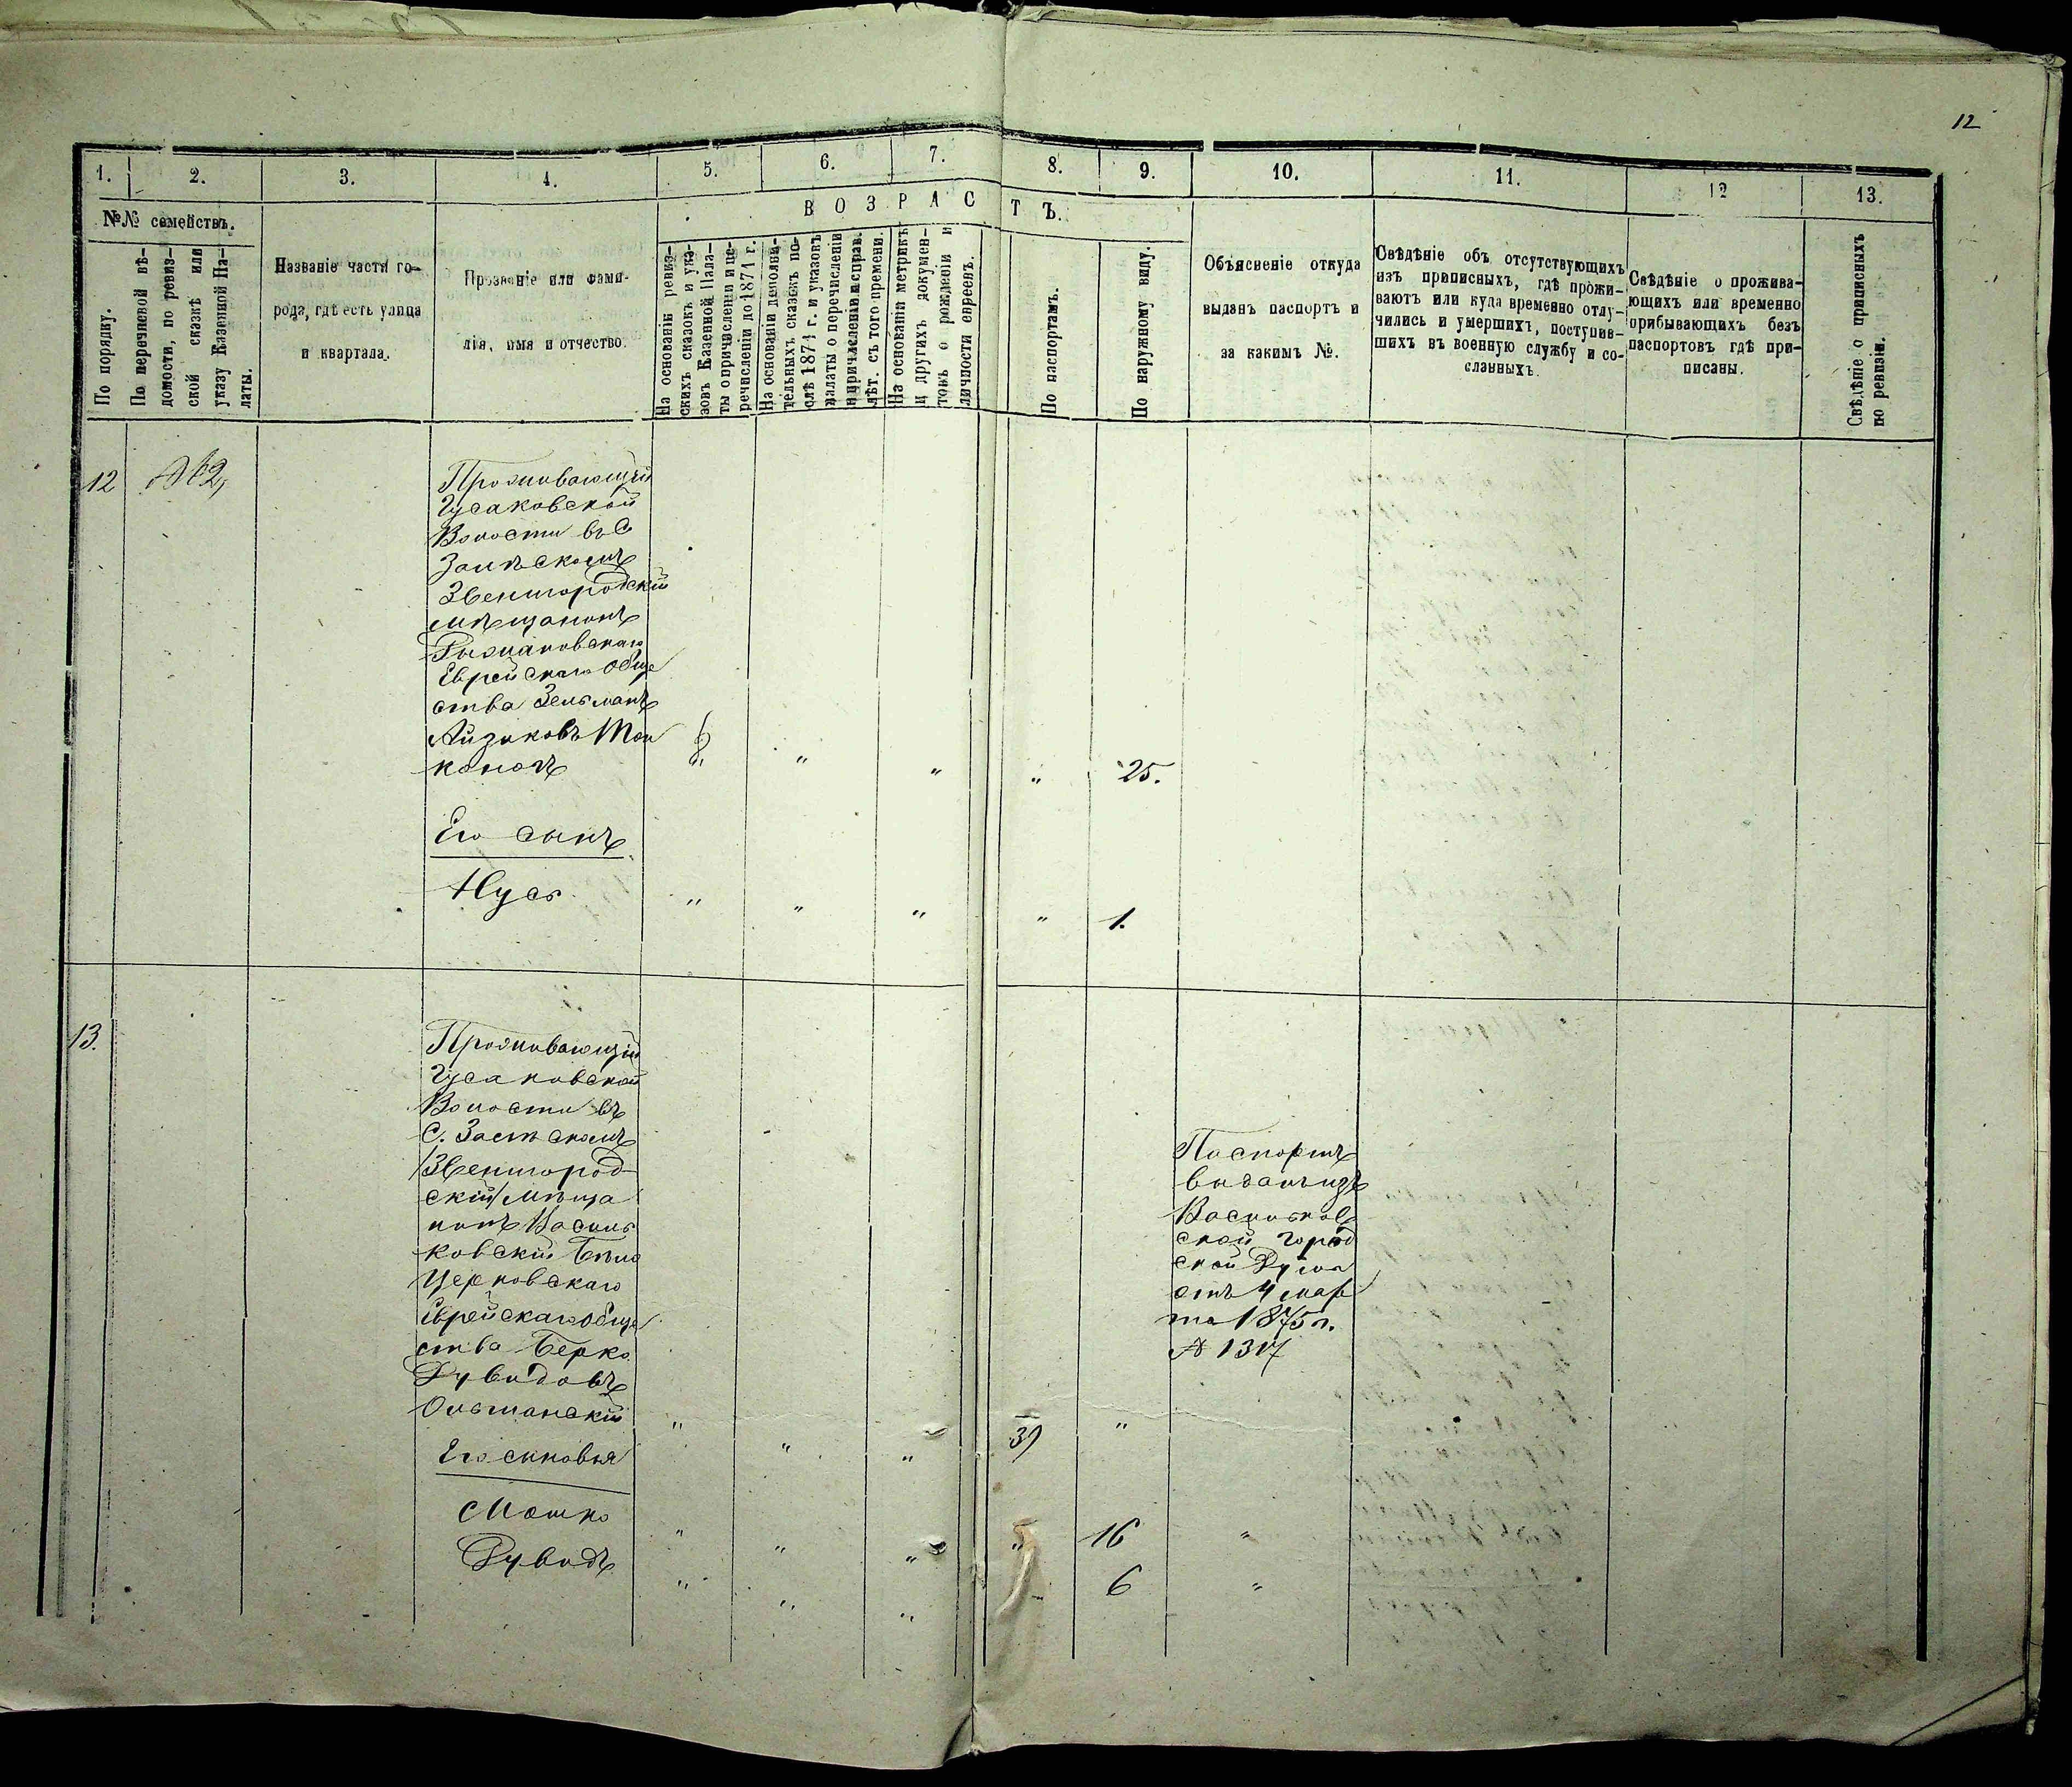 12
1. 2. 3. 4. 5. 6. 7. 8. 9. 10. 11. 12 13.
№№ семействъ.
В О З Р А С Т Ъ.
По порядку.
По перечневой вѣ-
домости, по ревиз-
ской сказкѣ или
указу Казенной Па-
латы.
Названіе части го-
рода, гдѣ есть улица
и квартала.
Прозваніе или фами-
лія, имя и отчество.
На основаніи ревиз-
скихъ сказокъ и ука-
зовъ Казенной Пала-
ты о причисленіи и пе-
речисленіи до 1871 г.
На основаніи дополни-
тельныхъ сказокъ по-
слѣ 1871 г. и указовъ
палаты о перечисленіи
и причисленіи и справ.
лѣт. съ того времени.
На основаніи метрикъ
и другихъ докумен-
товъ о рожденіи и
личности евреевъ.
По паспортамъ.
По наружному виду.
Объясненіе откуда
выданъ паспортъ и
за какимъ №.
Свѣдѣніе объ отсутствующихъ
изъ приписныхъ, гдѣ прожи-
ваютъ или куда временно отлу-
чились и умершихъ, поступив-
шихъ въ военную службу и со-
сланныхъ.
Свѣдѣніе о прожива-
ющихъ или временно
прибывающихъ безъ
паспортовъ гдѣ при-
писаны.
Свѣдѣніе о приписныхъ
по ревизіи.
12
Проживающій
Гусаковской
Волости въ С
Звенигородскій
мѣщанинъ
Рыжановскаго
Еврейскаго Обще
ства Зельманъ
Айзиковъ
" " " 25.
Его сынъ
Нусь " " " " 1.
13.
Проживающій
Гусаковской
Волости въ
С.
Звенигород-
скій мѣща
нинъ Василь
ковскій Бѣло
Церковскаго
Еврейскаго Обще
ства Берко
Дувидовъ
Ольшанскій " " " "
Паспортъ
виданъ изъ
Васильков
ской город
ской Думы
отъ 4 мар
та 1875 г.
№ 1317
Его синовья
Мошко " " " " 16 "
Дувидъ " " " 6 "